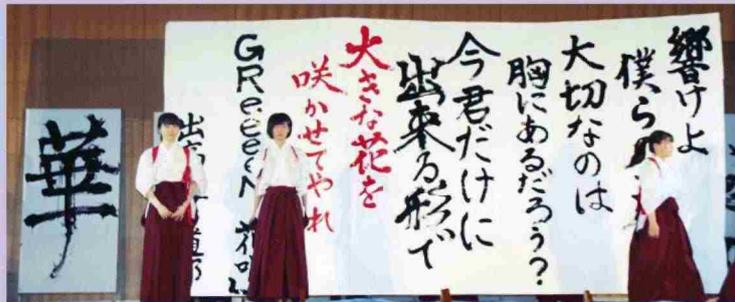 響けよ
僕ら
大切なのは
胸にあるだろう?
今君だけに
出来る形で
大きな花を
咲かせてやれ
GReeeeN 花唄
華